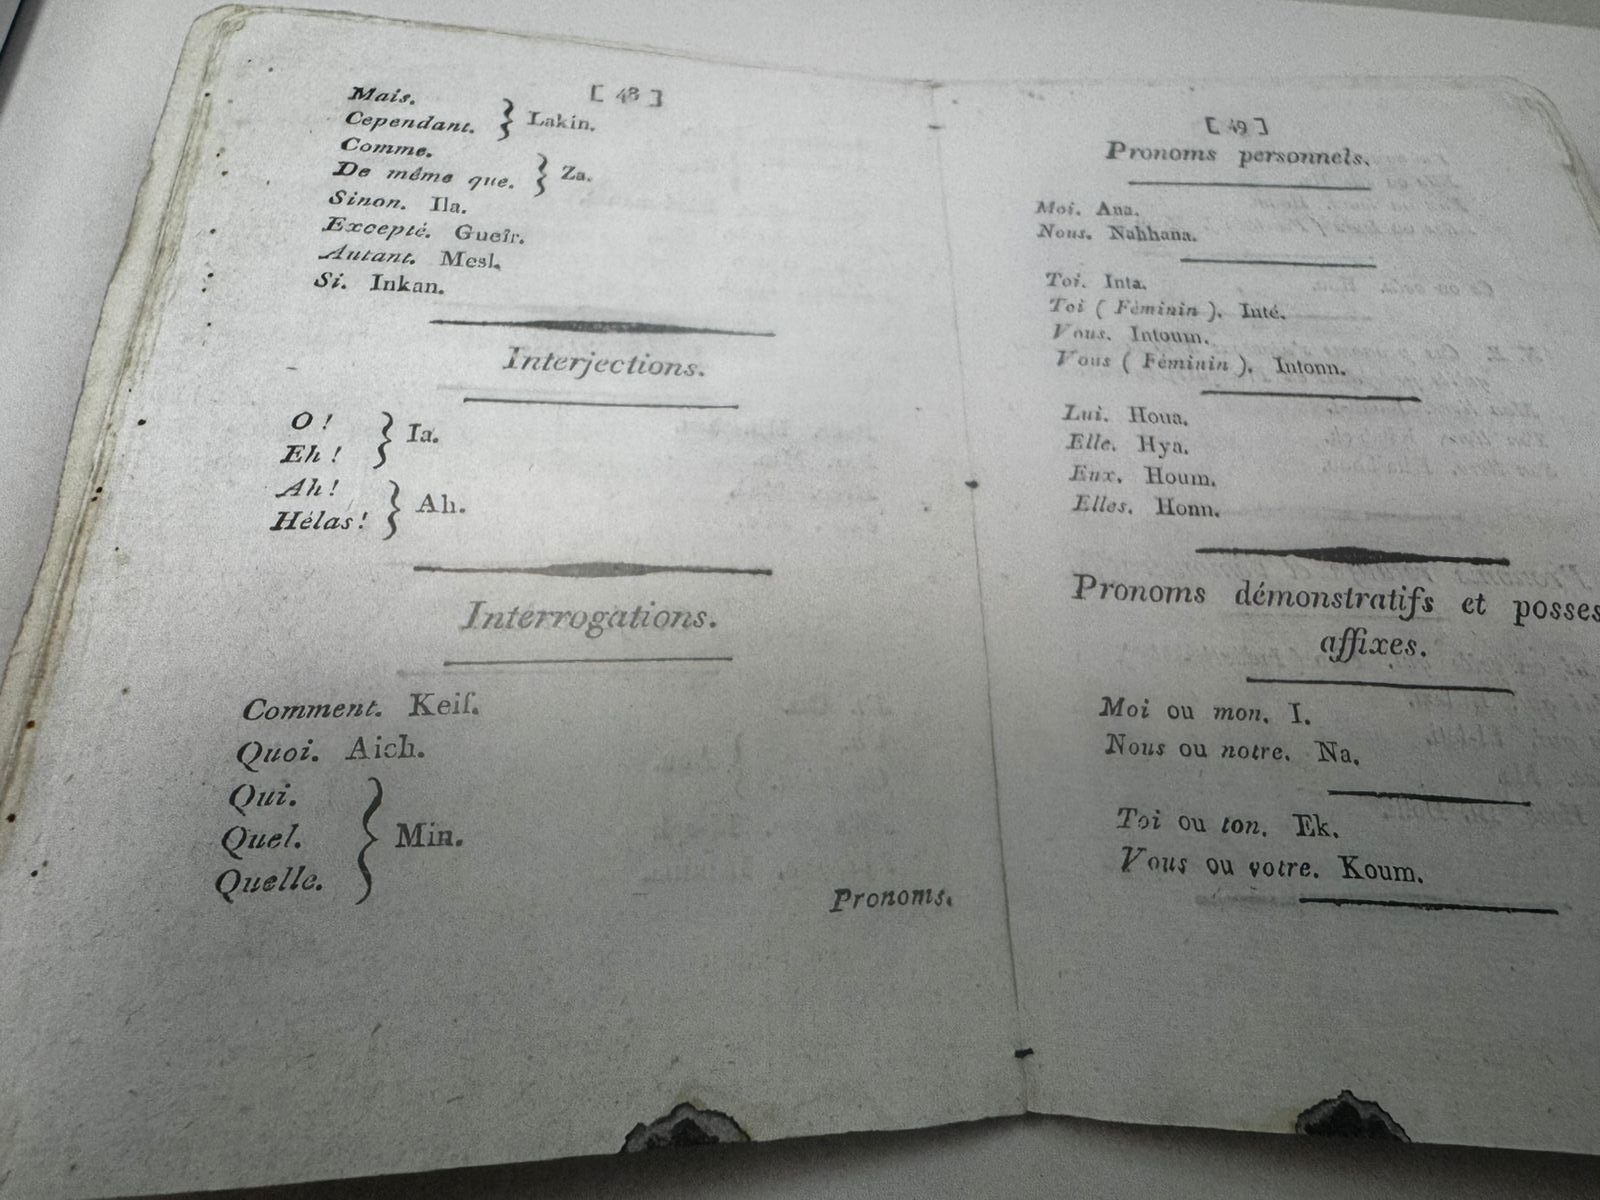 [ 48 ]
Mais.
Cependant. } Lakin.
Comme.
De même que. } Za.
Sinon. Ila.
Excepté. Gueïr.
Autant. Mesl.
Si. Inkan.
Interjections.
O !
Eh ! } Ia.
Ah !
Hélas ! } Ah.
Interrogations.
Comment. Keif.
Quoi. Aich.
Qui.
Quel. } Min.
Quelle.
Pronoms.
[ 49 ]
Pronoms personnels.
Moi. Ana.
Nous. Nahhana.
Toi. Inta.
Toi ( Féminin ). Inté.
Vous. Intoum.
Vous ( Féminin ). Intonn.
Lui. Houa.
Elle. Hya.
Eux. Houm.
Elles. Honn.
Pronoms démonstratifs et posses
affixes.
Moi ou mon. I.
Nous ou notre. Na.
Toi ou ton. Ek.
Vous ou votre. Koum.